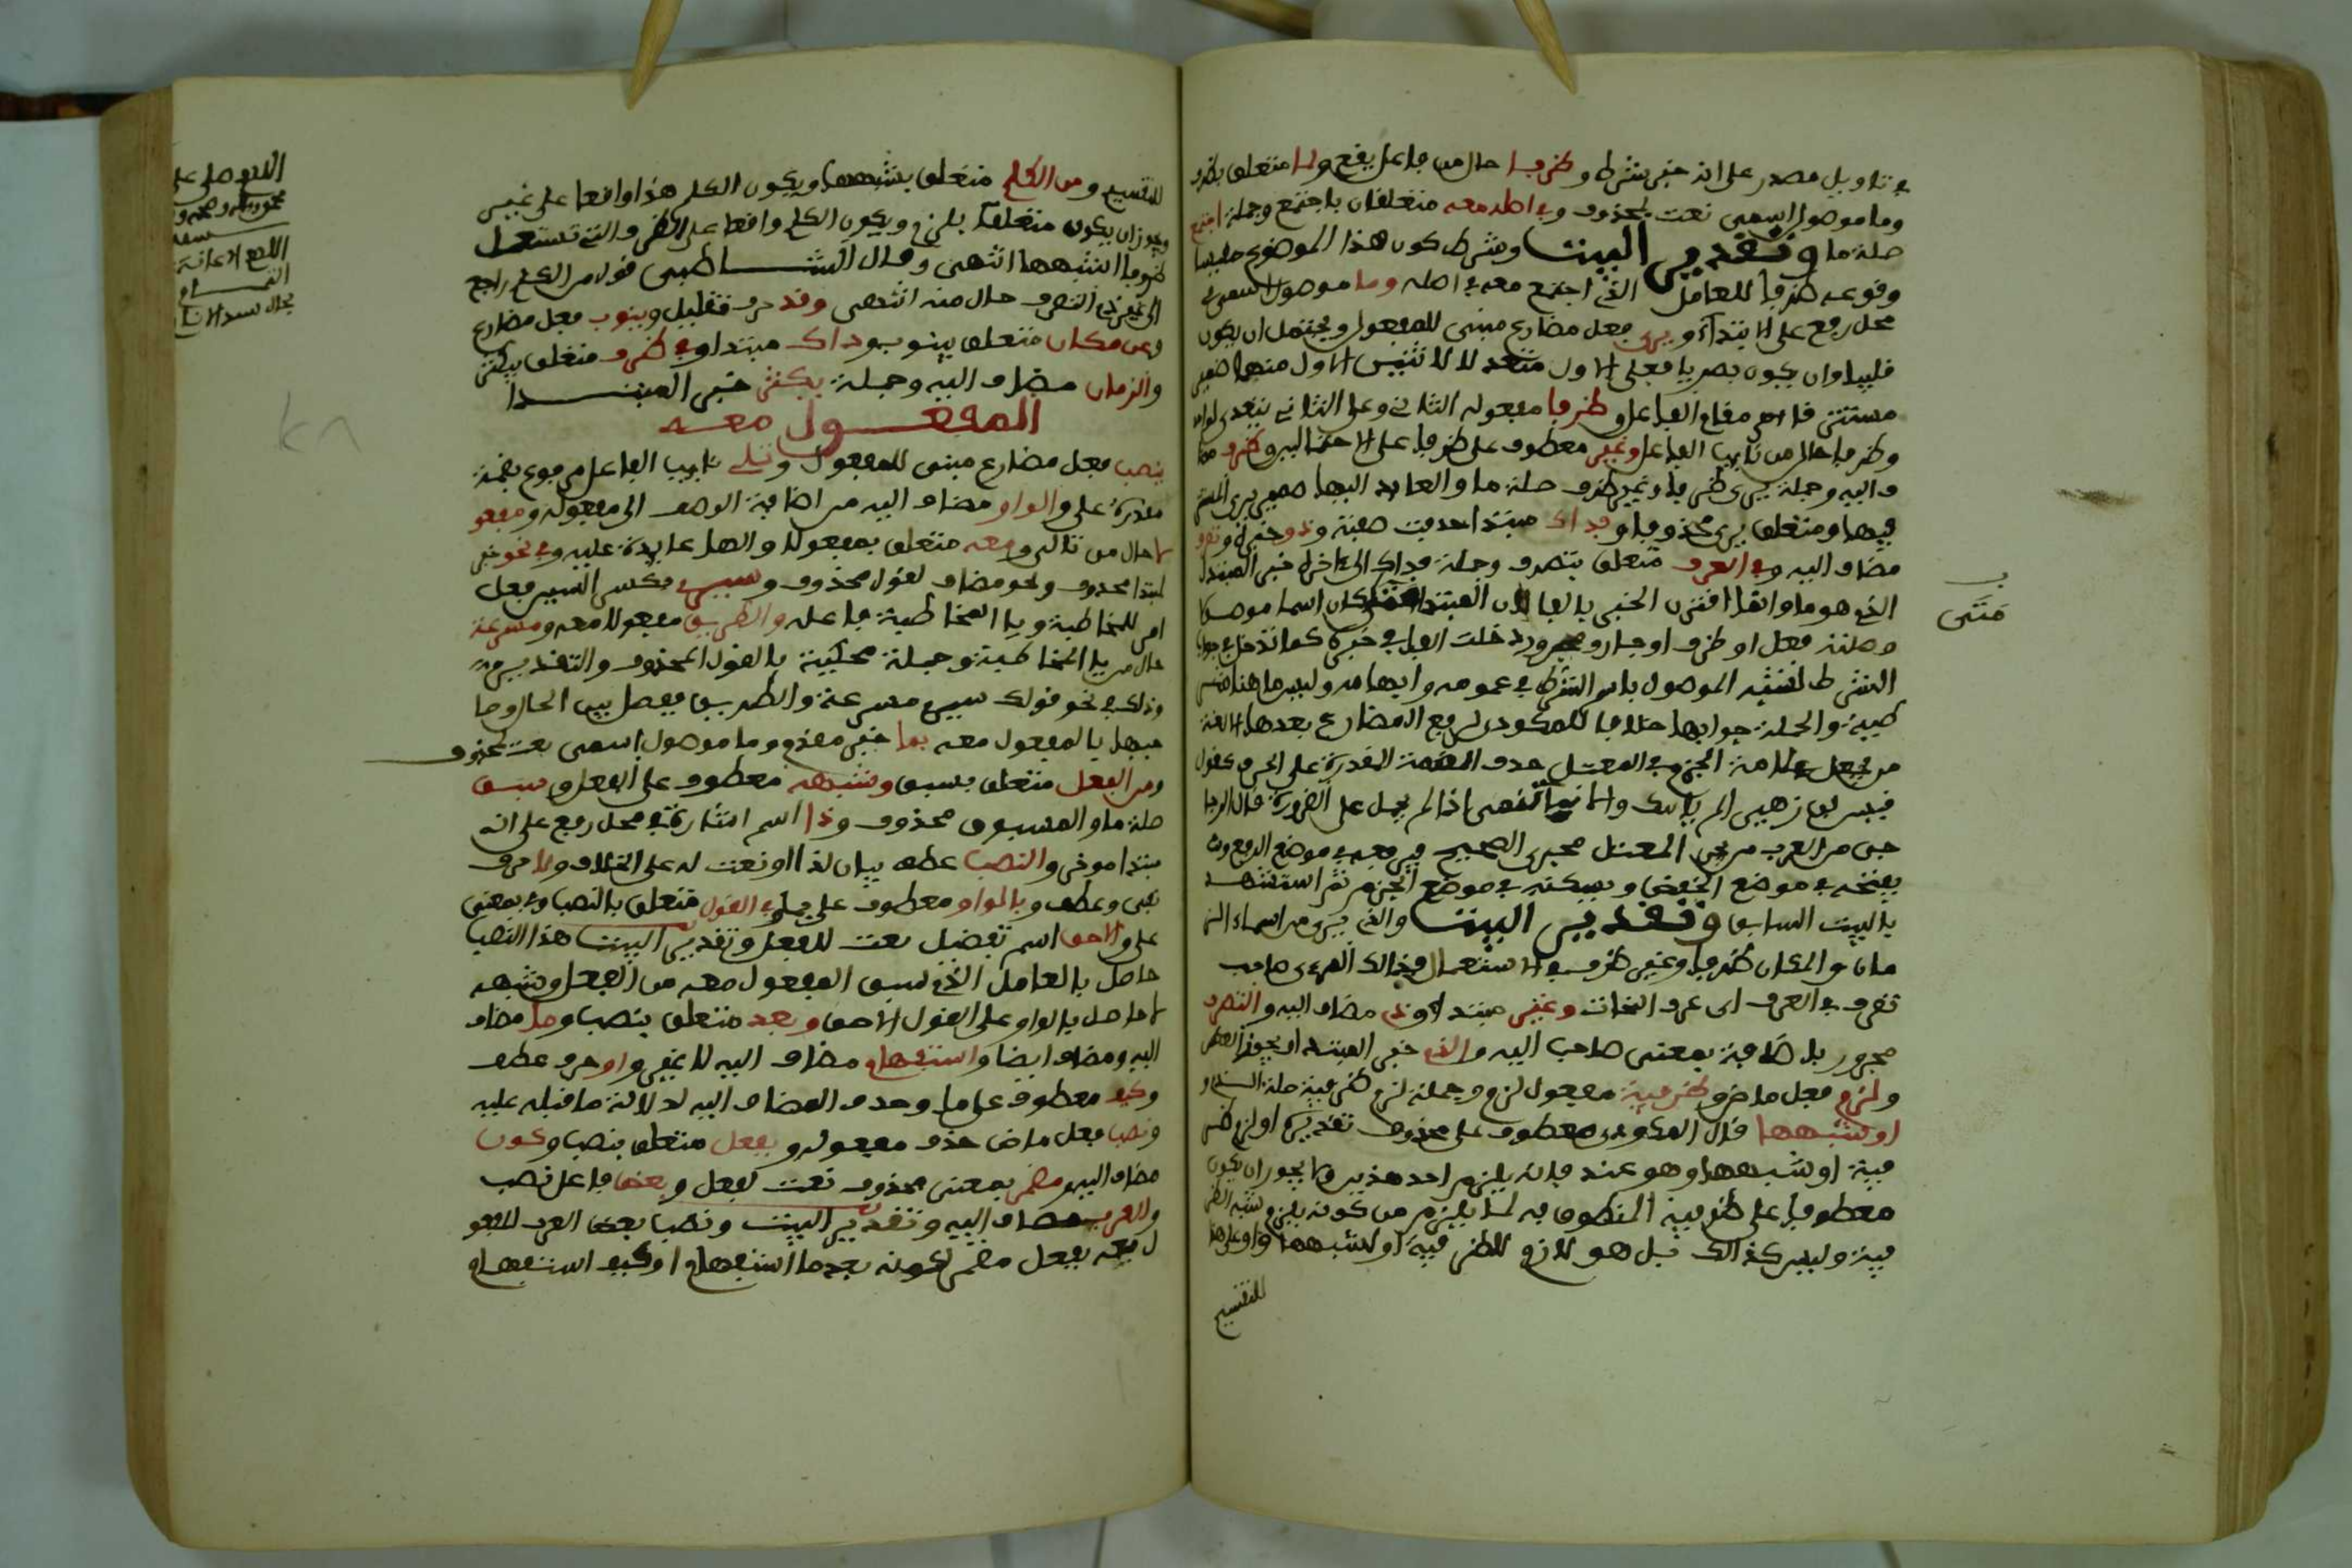 في تاويل مصدر على انه خبر شرط وظرفا حال من فاعل يقع ولما متعلق بظرف
وما موصول اسمي نعت لمحذوف وفي اصله معه متعلقان باجتمع وجملة اجتمع
صلة ما وتقدير البيت وشرط كون هذا الموضوع
وقوعه ظرفا للعامل الذي اجتمع معه في اصله وما موصول اسمي في
محل رفع على الابتداء ويرى فعل مضارع مبني للمفعول ويحتمل ان يكون
قلبيا وان يكون بصريا فعلى الاول متعد لاثنين الاول منهما ضمير
مستتر قائم مقام الفاعل وظرفا مفعوله الثاني وعلى الثاني يتعدى لواحد
وظرفا حال من نايب الفاعل وغير معطوف على ظرفا على الاحتمالين وظرف مضا
ف اليه وجملة يرى ظرفا وغير ظرف صلة ما والعايد اليها ضمير يرى المستتر
فيها ومتعلق يرى محذوف وفذاك مبتدا حذفت صفته وذو خبره وتصرف
مضاف اليه وفي العرف متعلق بتصرف وجملة فذاك الى ءاخره خبر المبتدا
الذي هو ما وانما اقترن الخبر بالفا لان المبتدا متى كان اسما موصولا
وصلته فعل او ظرف او جار ومجرور دخلت الفا في خبره كما تدخل في جواب
الشرط لشبه الموصول باسم الشرط في عمومه وابهامه وليس ما هنا شر
طية والجملة جوابها خلافا للمكودي لرفع المضارع بعدها الا لغة
من يجعل علامة الجزم في المعتل حذف الضمة المقدرة على الحرف كقول
قيس بن زهير الم ياتيك والانباء تنمى اذا لم يحمل على الضرورة قال الزجا
جي من العرب من يجري المعتل مجرى الصحيح فيرفعه في موضع الرفع و
يفتحه في موضع الخفض ويسكنه في موضع الجزم ثم استشهد
بالبيت السابق وتقدير البيت والذي يرى من اسماء الز
مان والمكان ظرفا وغير ظرف في الاستعمال فذالك المرءى صاحب
تصرف في العرف اي عرف النحات وغير مبتدا وذي مضاف اليه والتصرف
مجرور بالاضافة بمعنى صاحب اليه والذي خبر المبتدا ويجوز العكس
ولزم فعل ماض وظرفية مفعول لزم وجملة لزم ظرفية صلة الذي و
او شبهها قال المكودي معطوف على محذوف تقديره او لزم ظر
فية او شبهها وهو عنده فانه يلزم احد هذين ولا يجوز ان يكون
معطوفا على ظرفية المنطوق به لما يلزم من كونه يلزم شبه الظر
فية وليس كذالك بل هو لازم للظرفية او لشبهها واو على هذا
للتقسيم
متى
للتقسيم ومن الكلم متعلق بشبهها ويكون الكلم هذا واقعا على غير
ويجوز ان يكون متعلقا بلزم ويكون الكلم واقعا على الظروف التي تستعمل
ظروفا او شبهها انتهى وقال الشاطبي قوله من الكلم راجع
الى غير ذي التصرف حال منه انتهى وقد حرف تقليل وينوب فعل مضارع
وعن مكان متعلق بينوب وذاك مبتدا وفي ظرف متعلق بيكثر
والزمان مضاف اليه وجملة يكثر خبر المبتدا
المفعول معه
ينصب فعل مضارع مبني للمفعول وتالي نايب الفاعل مرفوع بضمة
مقدرة على والواو مضاف اليه من اضافة الوصف الى مفعوله ومفعو
لا حال من تالي ومعه متعلق بمفعولا والها عايدة عليه وفي نحو خبر
لمبتدا محذوف ونحو مضاف لقول محذوف وسيري بكسر السين فعل
امر للمخاطبة ويا المخاطبة فاعله والطريق مفعولا معه ومسرعة
حال من يا المخاطبة وجملة محكية بالقول المحذوف والتقدير
وذلك في نحو قولك سيري مسرعة والطريق ففصل بين الحال وصا
حبها بالمفعول معه بما خبر مقدم وما موصول اسمي نعت لمحذوف
ومن الفعل متعلق بسبق وشبهه معطوف على الفعل وسبق
صلة ما والمسبوق محذوف وذا اسم اشارة في محل رفع على انه
مبتدا موخر والنصب عطف بيان لذا او نعت له على الخلاف ولا حرف
نفي وعطف وبالواو معطوف على بما وفي القول متعلق بالنصب وفي بمعنى
على والاحق اسم تفضيل نعت للقول وتقدير البيت هذا النصب
حاصل بالعامل الذي سبق المفعول معه من الفعل وشبهه
لا حاصل بالواو على القول الاحق وبعد متعلق بنصب وما مضاف
اليه ومضاف ايضا واستفهام مضاف اليه لا غير واو حرف عطف
وكيف معطوف على ما وحذف المضاف اليه لدلالة ما قبله عليه
ونصب فعل ماض حذف مفعوله وبفعل متعلق بنصب وكون
مضاف اليه ومضمر بمعنى محذوف نعت لفعل وبعض فاعل نصب
والعرب مضاف اليه وتقدير البيت ونصب بعض العرب المفعو
ل معه بفعل مضمر لكونه بعد ما استفهام او كيف استفهام
اللهم صلى على